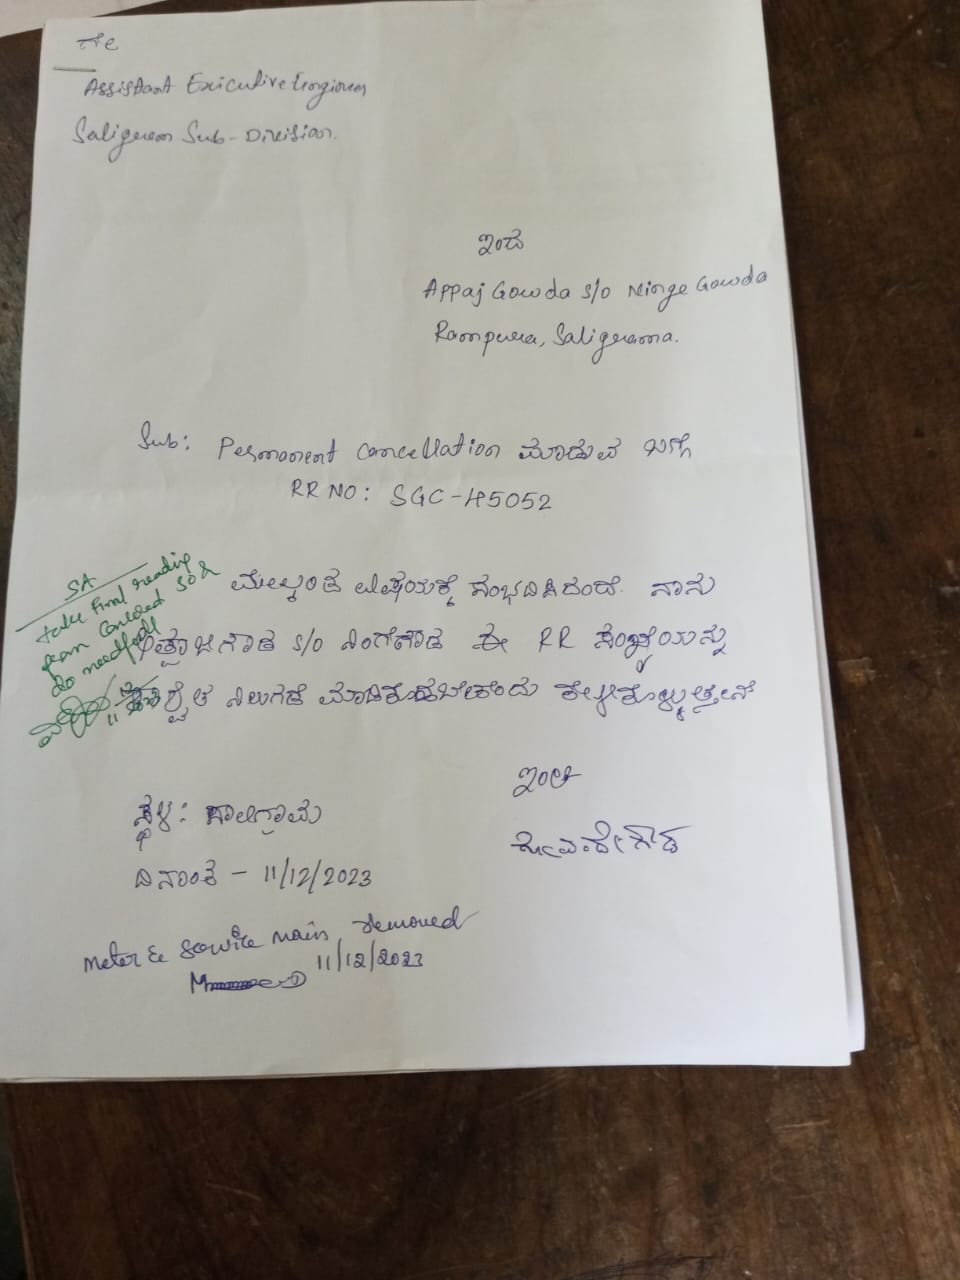 ಗೆ
Assistant Exicutive Engineer
Saligram Sub-Division.
ಇಂದ
Appaj Gowda s/o Ninge Gowda
Rampura, Saligrama.
Sub: Permanent cancellation ಮಾಡುವ ಬಗ್ಗೆ
RR NO: SGC-45052
SA
take final reading
from concered SO &
do needfull
ಮೇಲ್ಕಂಡ ವಿಷಯಕ್ಕೆ ಸಂಭಂದಿಸಿದಂತೆ. ನಾನು
ಅಪ್ಪಾಜಿಗೌಡ s/o ನಿಂಗೇಗೌಡ ಈ RR ಸಂಖ್ಯೆಯನ್ನು
ನಿಲುಗಡೆ ಮಾಡಿಕೊಡಬೇಕೆಂದು ಕೇಳಿಕೊಳ್ಳುತ್ತೇನೆ
ಇಂತಿ
ಸ್ಥಳ: ಸಾಲಿಗ್ರಾಮ
ದಿನಾಂಕ - 11/12/2023
Meter & service main removed
11/12/2023